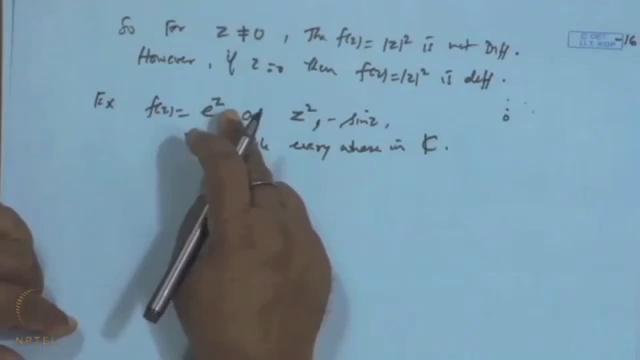 So For z ≠ 0, The f(z) = |z|² is not Diff.
However, if z = 0 then f(z) = |z|² is diff.
Ex f(z) = e^z z², - sin z,
every where in ℂ.
-16
NPTEL